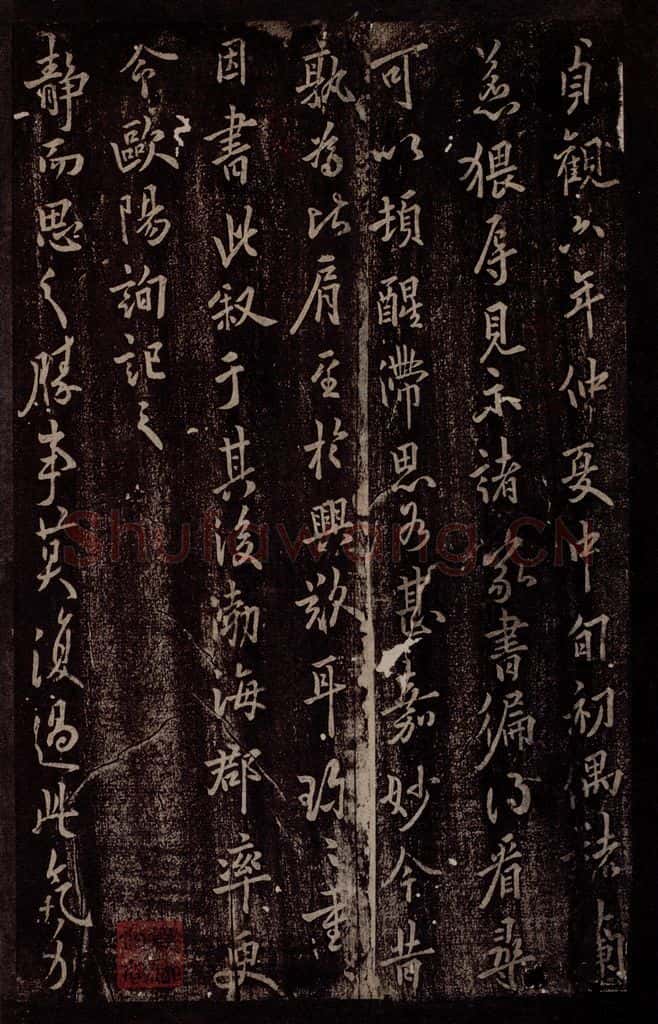 貞觀六年仲夏中旬初偶
慈猥辱見示諸家書徧得看尋
可以頓醒滯思為甚嘉妙今昔
孰為比肩至於興歎耳珍之重
因書此叙于其後渤海郡率更
令歐陽詢記之
靜而思之勝事莫復過此氣力
Shufawang.CN